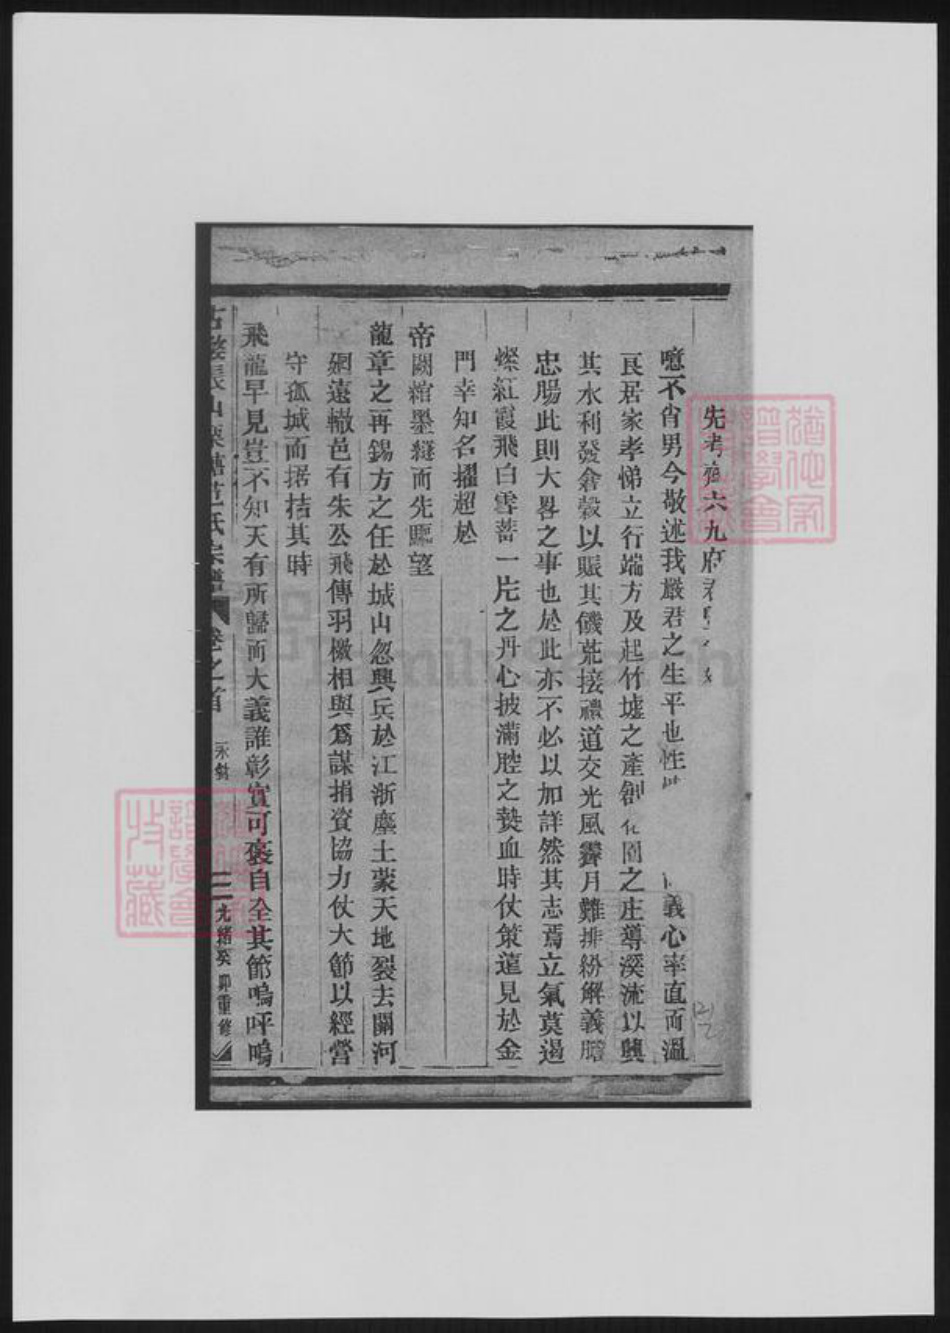 先考齊六九府君
噫不肖男今敬述我嚴君之生平也性 義心率直而溫
良居家孝悌立行端方及起竹墟之產創花園之庄導溪流以興
其水利發倉穀以賑其饑荒接禮道交光風霽月難排紛解義膽
忠腸此則大畧之事也於此亦不必以加詳然其志焉立氣莫遏
燦紅霞飛白雪菩一片之丹心披滿腔之熱血時仗策遠見於金
門幸知名擢超於
帝闕綰墨綬而先臨望
龍章之再錫方之任於城山忽興兵於江浙塵土蒙天地裂去關河
迥遠轍邑有朱公飛傳羽檄相與爲謀捐資協力仗大節以經營
守孤城而拮其時
飛龍早見豈不知天有所歸而大義誰彰實可褒自全其節嗚呼嗚
古婺長山栗塘范氏宗譜 卷之首 永 二 光緒癸卯重修